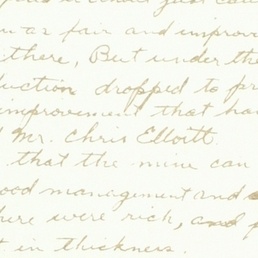 on a fair and improv
either, But under the
duction dropped to pr
improvement that ha
Mr. Chris Elloitt.
that the mine can
ood management and
here were rich, and p
t in thickness.